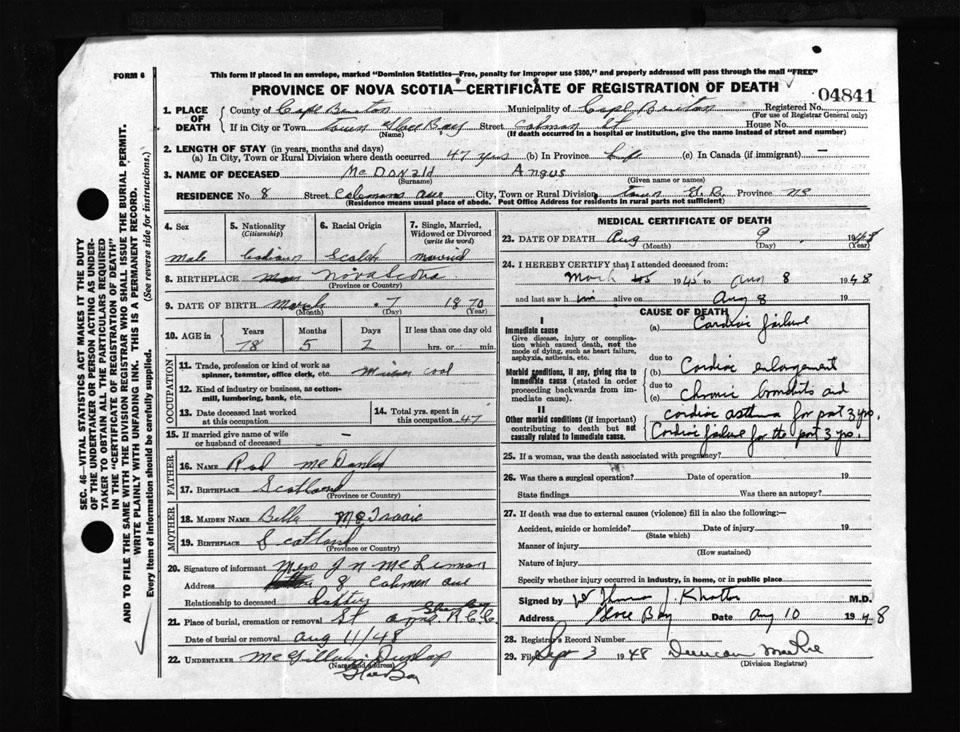 FORM 6
This form if placed in an envelope, marked "Dominion Statistics—Free, penalty for improper use $300," and properly addressed will pass through the mail "FREE"
PROVINCE OF NOVA SCOTIA—CERTIFICATE OF REGISTRATION OF DEATH
04841
SEC. 46—VITAL STATISTICS ACT MAKES IT THE DUTY
OF THE UNDERTAKER OR PERSON ACTING AS UNDER-
TAKER TO OBTAIN ALL THE PARTICULARS REQUIRED
IN THE "CERTIFICATE OF REGISTRATION OF DEATH"
AND TO FILE THE SAME WITH THE DIVISION REGISTRAR WHO SHALL ISSUE THE BURIAL PERMIT.
WRITE PLAINLY WITH UNFADING INK. THIS IS A PERMANENT RECORD.
Every item of information should be carefully supplied. (See reverse side for instructions.)
1. PLACE OF DEATH
County of Cape Breton Municipality of Cape Breton Registered No.
(For use of Registrar General only)
If in City or Town Town Glace Bay Street St House No.
(Name) (If death occurred in a hospital or institution, give the name instead of street and number)
2. LENGTH OF STAY (in years, months and days)
(a) In City, Town or Rural Division where death occurred 47 yrs (b) In Province Life (c) In Canada (if immigrant) —
3. NAME OF DECEASED McDonald Angus
(Surname) (Given name or names)
RESIDENCE No 8 Street ave City, Town or Rural Division Town G.B. Province NS
(Residence means usual place of abode. Post Office Address for residents in rural parts not sufficient)
4. Sex
male
5. Nationality
(Citizenship)
6. Racial Origin
7. Single, Married, Widowed or Divorced
(write the word)
8. BIRTHPLACE Nova Scotia
(Province or Country)
9. DATE OF BIRTH March 7 1870
(Month) (Day) (Year)
10. AGE in Years Months Days If less than one day old
78 5 2 hrs. or min.
OCCUPATION
11. Trade, profession or kind of work as
spinner, teamster, office clerk, etc. Miner coal
12. Kind of industry or business, as cotton-
mill, lumbering, bank, etc.
13. Date deceased last worked
at this occupation
14. Total yrs. spent in
this occupation 47
15. If married give name of wife
or husband of deceased —
FATHER
16. NAME Rod McDonald
17. BIRTHPLACE Scotland
(Province or Country)
MOTHER
18. MAIDEN NAME Bella McIsaac
19. BIRTHPLACE Scotland
(Province or Country)
20. Signature of informant Mrs J N
Address 8 ave
Relationship to deceased
21. Place of burial, cremation or removal St R.C.C.
Date of burial or removal Aug 11/48
22. UNDERTAKER Dunlap
(Name and address)
Glace Bay
MEDICAL CERTIFICATE OF DEATH
23. DATE OF DEATH Aug 9 1948
(Month) (Day) (Year)
24. I HEREBY CERTIFY that I attended deceased from:
March 1945 to Aug 8 1948
and last saw him alive on Aug 8 19
CAUSE OF DEATH
I
Immediate cause
Give disease, injury or complica-
tion which caused death, not the
mode of dying, such as heart failure,
asphyxia, asthenia, etc.
(a) Cardiac failure
due to
Morbid conditions, if any, giving rise to
immediate cause (stated in order
proceeding backwards from im-
mediate cause).
(b) Cardiac enlargement
due to
(c) chronic bronchitis and
cardiac asthma for past 3 yrs.
II
Other morbid conditions (if important)
contributing to death but not
causally related to immediate cause.
Cardiac failure for the past 3 yrs.
25. If a woman, was the death associated with pregnancy?
26. Was there a surgical operation? Date of operation 19
State findings Was there an autopsy?
27. If death was due to external causes (violence) fill in also the following:—
Accident, suicide or homicide? Date of injury 19
(State which)
Manner of injury
(How sustained)
Nature of injury
Specify whether injury occurred in industry, in home, or in public place
Signed by Thomas J. M.D.
Address Glace Bay Date Aug 10 1948
28. Registrar's Record Number
29. Filed Sept 3 1948 Duncan
(Division Registrar)